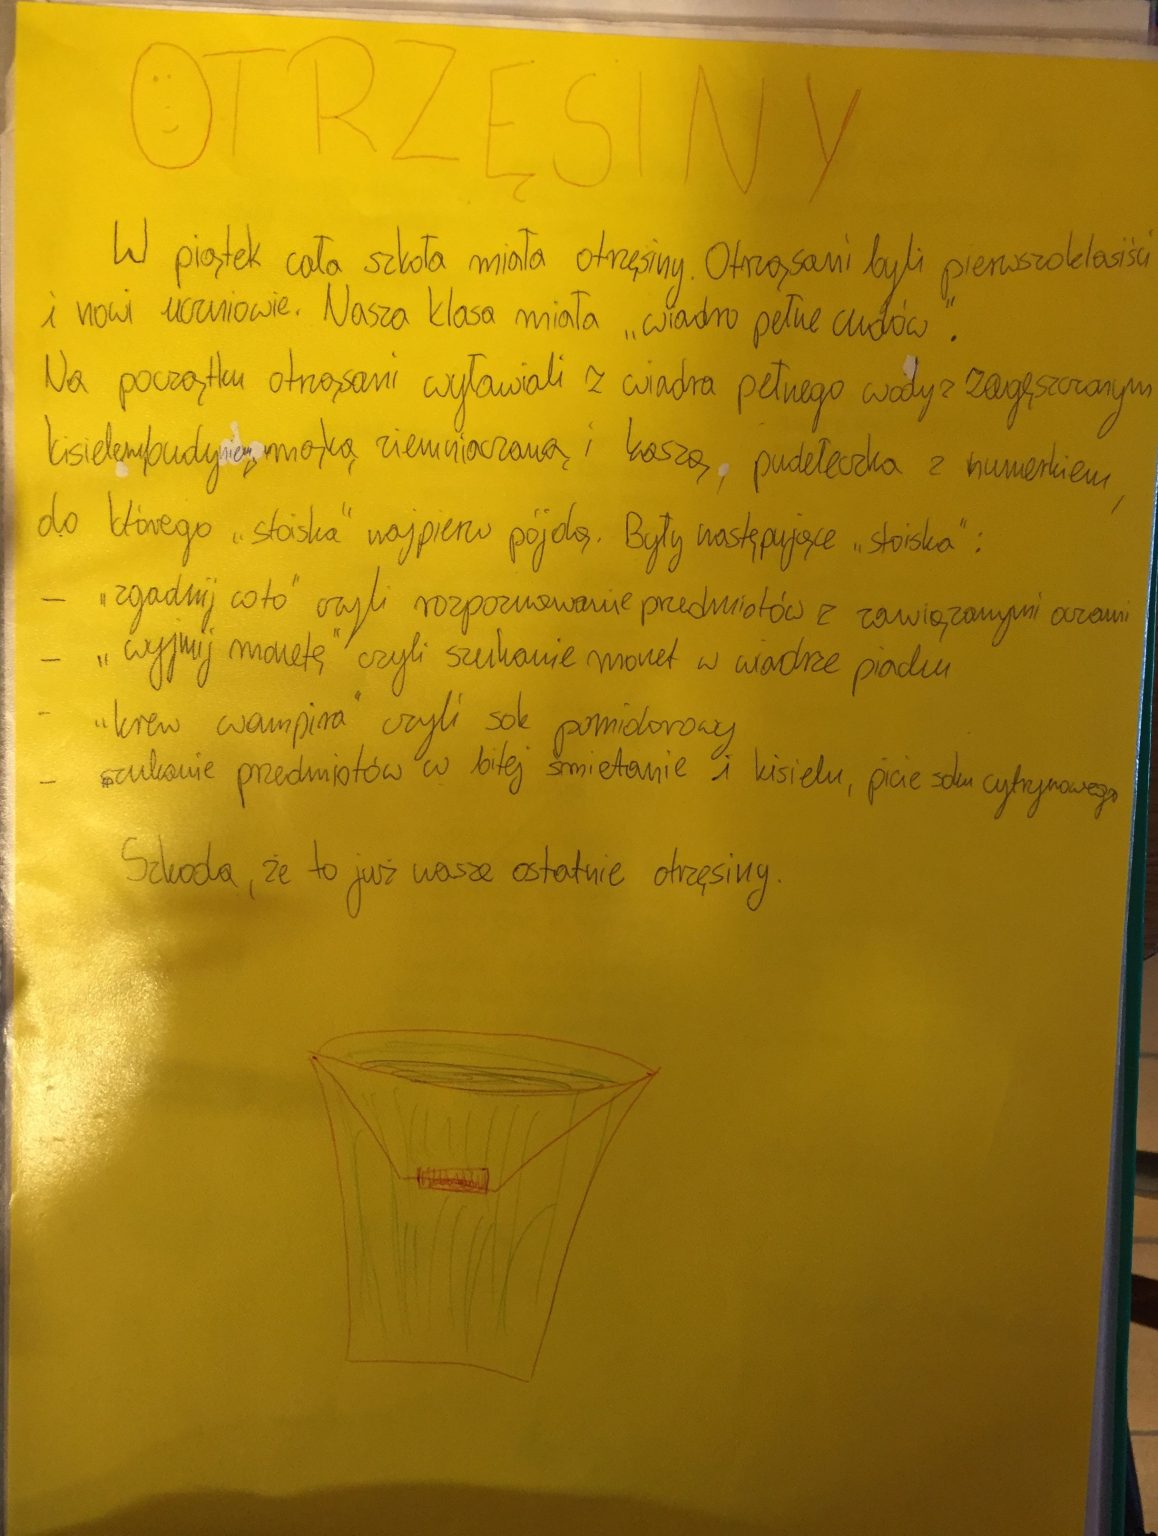 OTRZĘSINY
W piątek cała szkoła miała otrzęsiny. Otrząsani byli pierwszoklasiści
i nowi uczniowie. Nasza klasa miała „wiadro pełne cudów".
Na początku otrząsani wyławiali z wiadra pełnego wody z zagęszczonym
kisielem, budyniem, mąką ziemniaczaną i kaszą, pudełeczka z numerkiem,
do którego „stoiska" najpierw pójdą. Były następujące „stoiska":
- „zgadnij coto" czyli rozpoznawanie przedmiotów z zawiązanymi oczami
- „wyjmij monetę" czyli szukanie monet w wiadrze piachu
- „krew wampira" czyli sok pomidorowy
- szukanie przedmiotów w bitej śmietanie i kisielu, picie soku cytrynowego
Szkoda, że to już nasze ostatnie otrzęsiny.